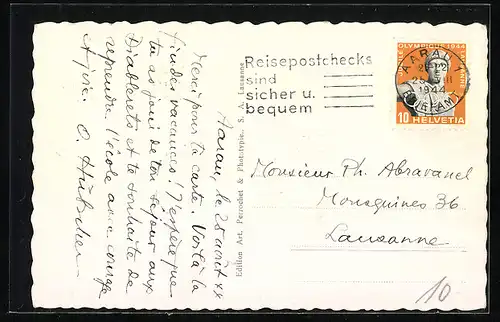 Aarau, le 28 août 44
Merci pour ta carte. Voilà la
fin des vacances! J'espère que
tu as joui de ton séjour aux
Diablerets et te souhaite de
reprendre l'école avec courage
O. Hübscher
Edition Art. Perrochet & Phototypie. S. A. Lausanne
Reisepostchecks
sind
sicher u.
bequem
AARAU 1
1944
OLYMPIQUE 1944
10 HELVETIA
Monsieur Ph. Abravanel
Mousquines 36
Lausanne
10